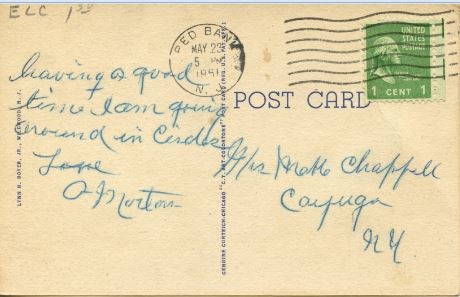 ELC 1.50
RED BANK
MAY 22
5 PM
1951
N.
UNITED
STATES
POSTAGE
1 CENT 1
having a good
time I am going
around in Circles
Love
O Morton
POST CARD
Mrs Matt Chappell
Cayuga
NY
LYNN H. BOYER, JR., WILDWOOD, N. J.
GENUINE CURTEICH-CHICAGO "C.T. ART-COLORTONE" POST CARD (REG. U.S. PAT. OFF.)